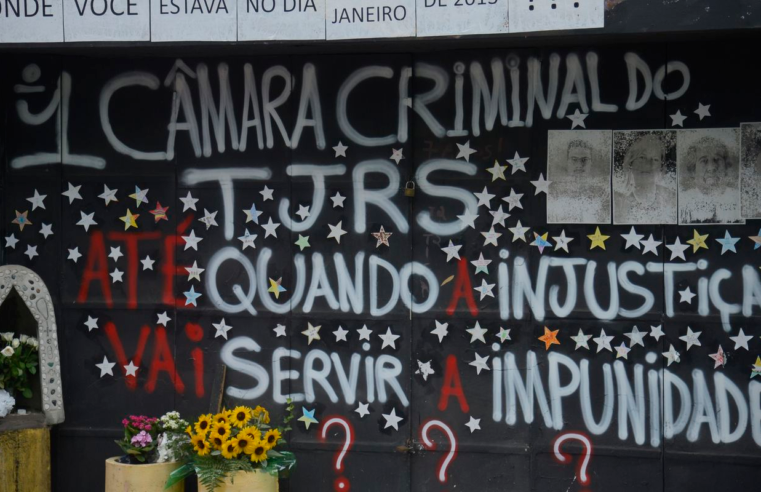 ONDE VOCÊ ESTAVA NO DIA JANEIRO DE 2013 ???
1ª CÂMARA CRIMINAL DO
TJRS
ATÉ QUANDO A INJUSTIÇA
VAI SERVIR A IMPUNIDADE
? ? ?